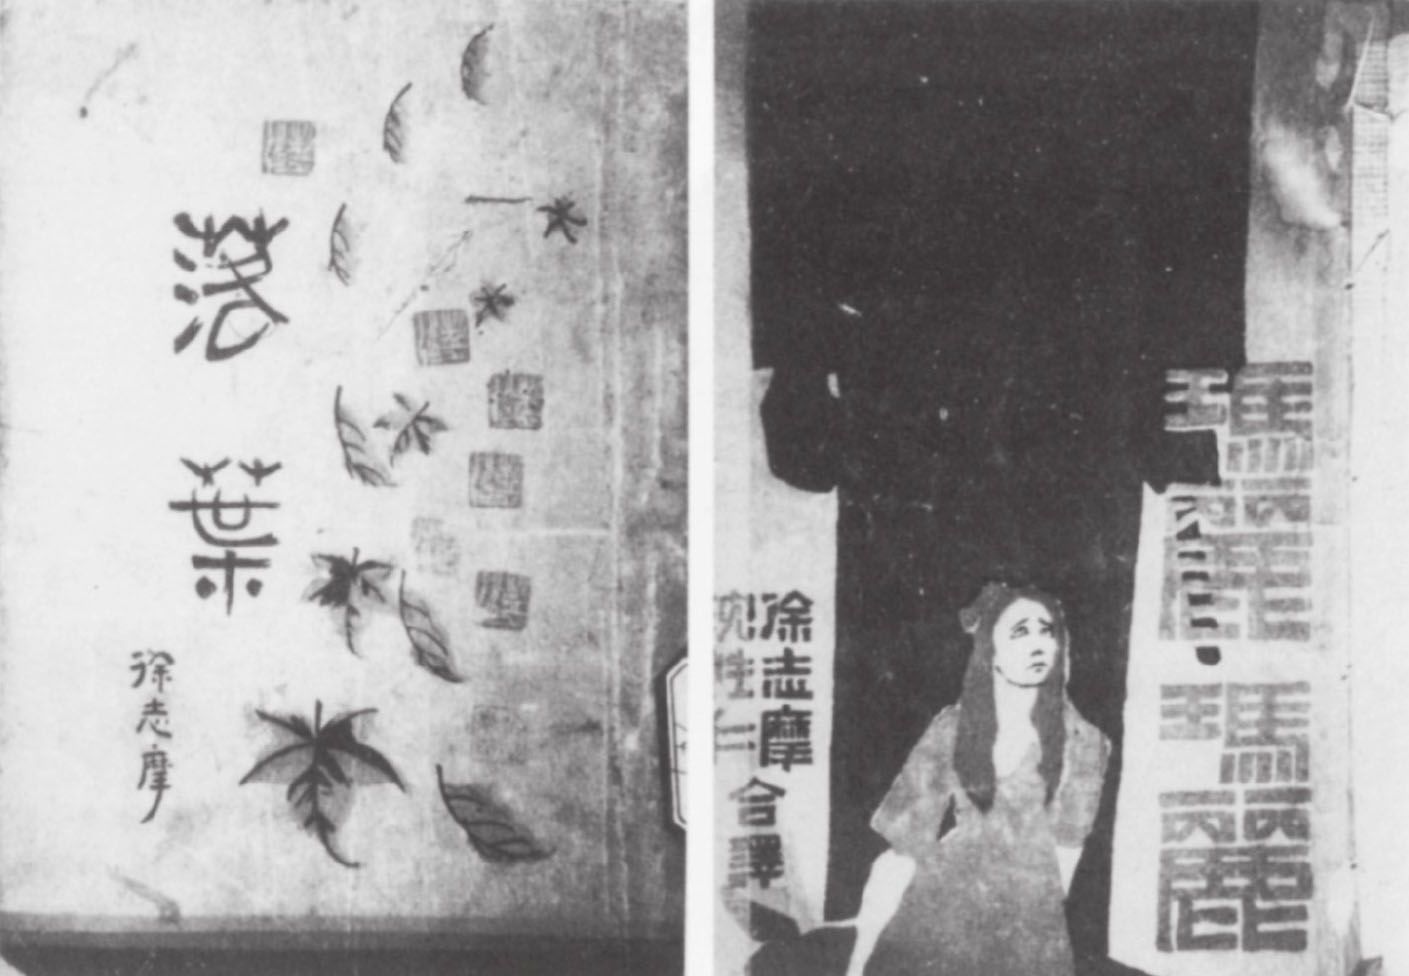 落葉
徐志摩
瑪麗
瑪麗
徐志摩
沈性仁
合譯